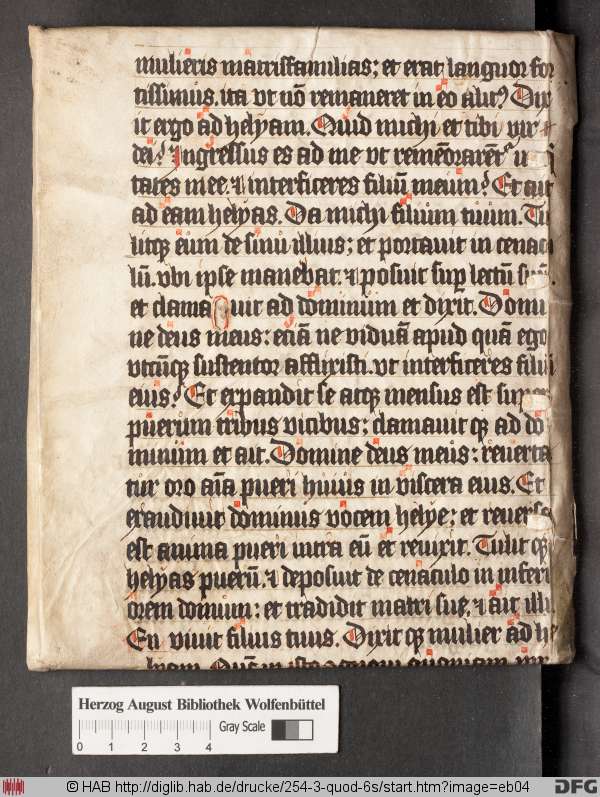 mulieris matrisfamilias; et erat languor for
tissimus. ita vt nō remaneret in eo alit⁹ Dix
it ergo ad helyam. Quid michi et tibi vir
dei? Ingressus es ad me vt remēorarent᷑ 
tates mee. ⁊ interficeres filiū meum? Et ait
ad eam helyas. Da michi filium tuum. Tu
litqꝫ eum de sinu illius; et portauit in cenac
lū. vbi ipse manebat. ⁊ posuit sup̄ lectū suū.
et clamauit ad dominum et dixit. Domi
ne deus meus: eciā ne viduā apud quā ego
vtcūqꝫ sustentor afflixisti. vt interficeres filiū
eius? Et expandit se atqꝫ mensus est super
puerum tribus vicibus; clamauit qꝫ ad do
minum et ait. Domine deus meus: reuerta
tur oro aīa pueri huius in viscera eius. Et
exaudiuit dominus vocem helye: et reuersa
est anima pueri intra eū et reuixit. Tulit qꝫ
helyas puerū. ⁊ deposuit de cenaculo in inferi
orem domum: et tradidit matri sue. ⁊ ait illi
En viuit filius tuus. Dixit qꝫ mulier ad he
lyam.
Herzog August Bibliothek Wolfenbüttel
Gray Scale
0 1 2 3 4
© HAB http://diglib.hab.de/drucke/254-3-quod-6s/start.htm?image=eb04
DFG